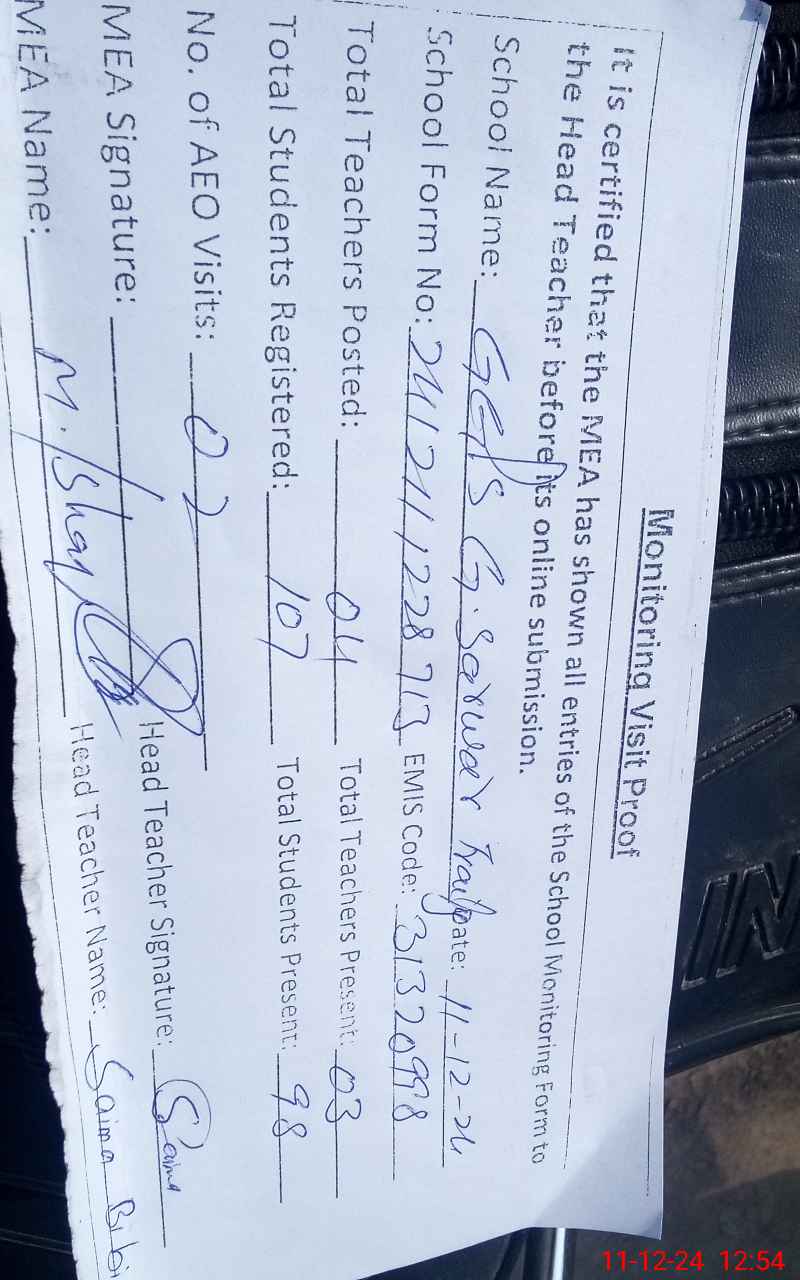 Monitoring Visit Proof
It is certified that the MEA has shown all entries of the School Monitoring Form to
the Head Teacher before its online submission.
School Name: GGPS G.Sarwar Trail Date: 11-12-24
School Form No: 2412411228713 EMIS Code: 31320998
Total Teachers Posted: 04 Total Teachers Present: 03
Total Students Registered: 107 Total Students Present: 98
No. of AEO Visits: 02
MEA Signature: Head Teacher Signature: Saima
MEA Name: M. Ishaq Head Teacher Name: Saima Bibi
11-12-24 12:54